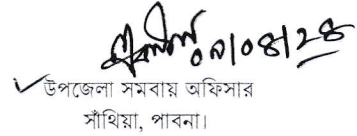 ০৭/০৪/২৪
উপজেলা সমবায় অফিসার
সাঁথিয়া, পাবনা।